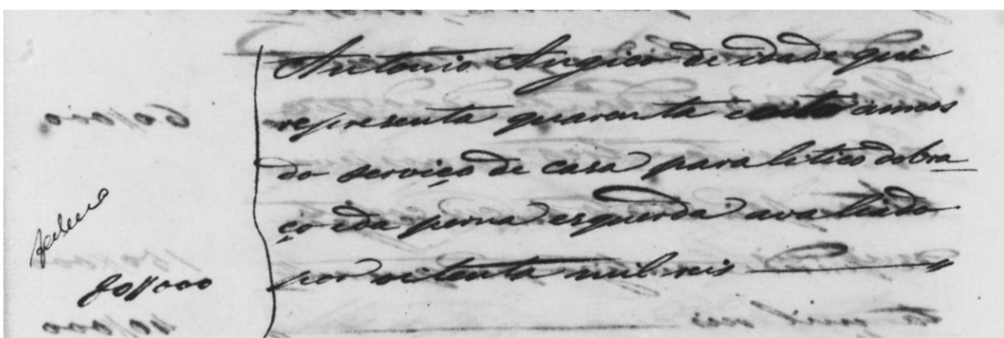 Antonio Angico de idade que
representa quarenta e oito annos
do serviço de casa paralitico do bra
ço e da perna esquerda avaliado
por oitenta mil reis
80$000